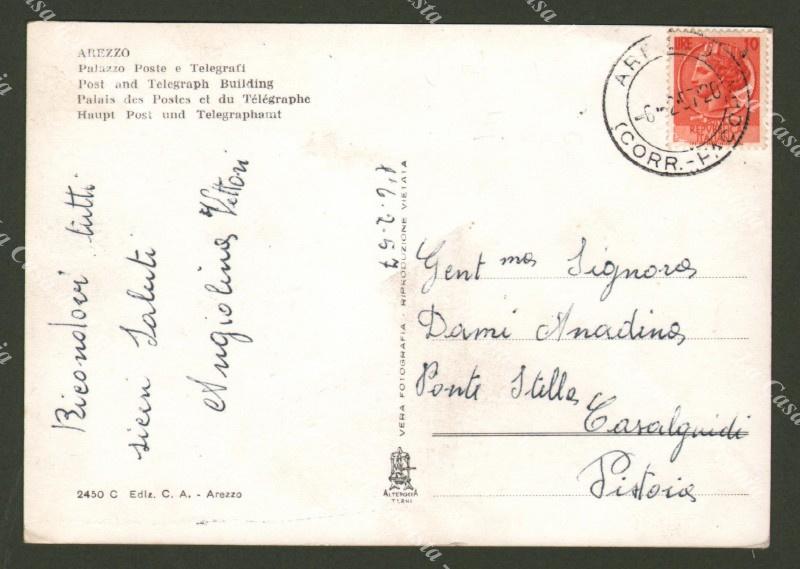 AREZZO
Palazzo Poste e Telegrafi
Post and Telegraph Building
Palais des Postes et du Télégraphe
Haupt Post und Telegraphamt
LIRE 10
(CORR.-PACCHI)
Ricondovi tutti
siceri Saluti
Angiolina Vettori
6-2-57
VERA FOTOGRAFIA - RIPRODUZIONE VIETATA
Gent ma Signora
Dami Anadina
Ponte Stella
Casalguidi
Pistoia
ALTEROCCA
TERNI
2450 C Ediz. C. A. - Arezzo